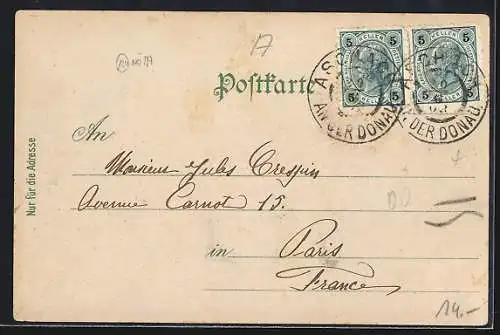 17
5 HELLER 5
5 HELLER 5
5 5
5 5
Postkarte
AN DER DONAU
DER DONAU
An
Monsieur Jules Crespin
Avenue Carnot 15.
in Paris
France
Nur für die Adresse
14.–